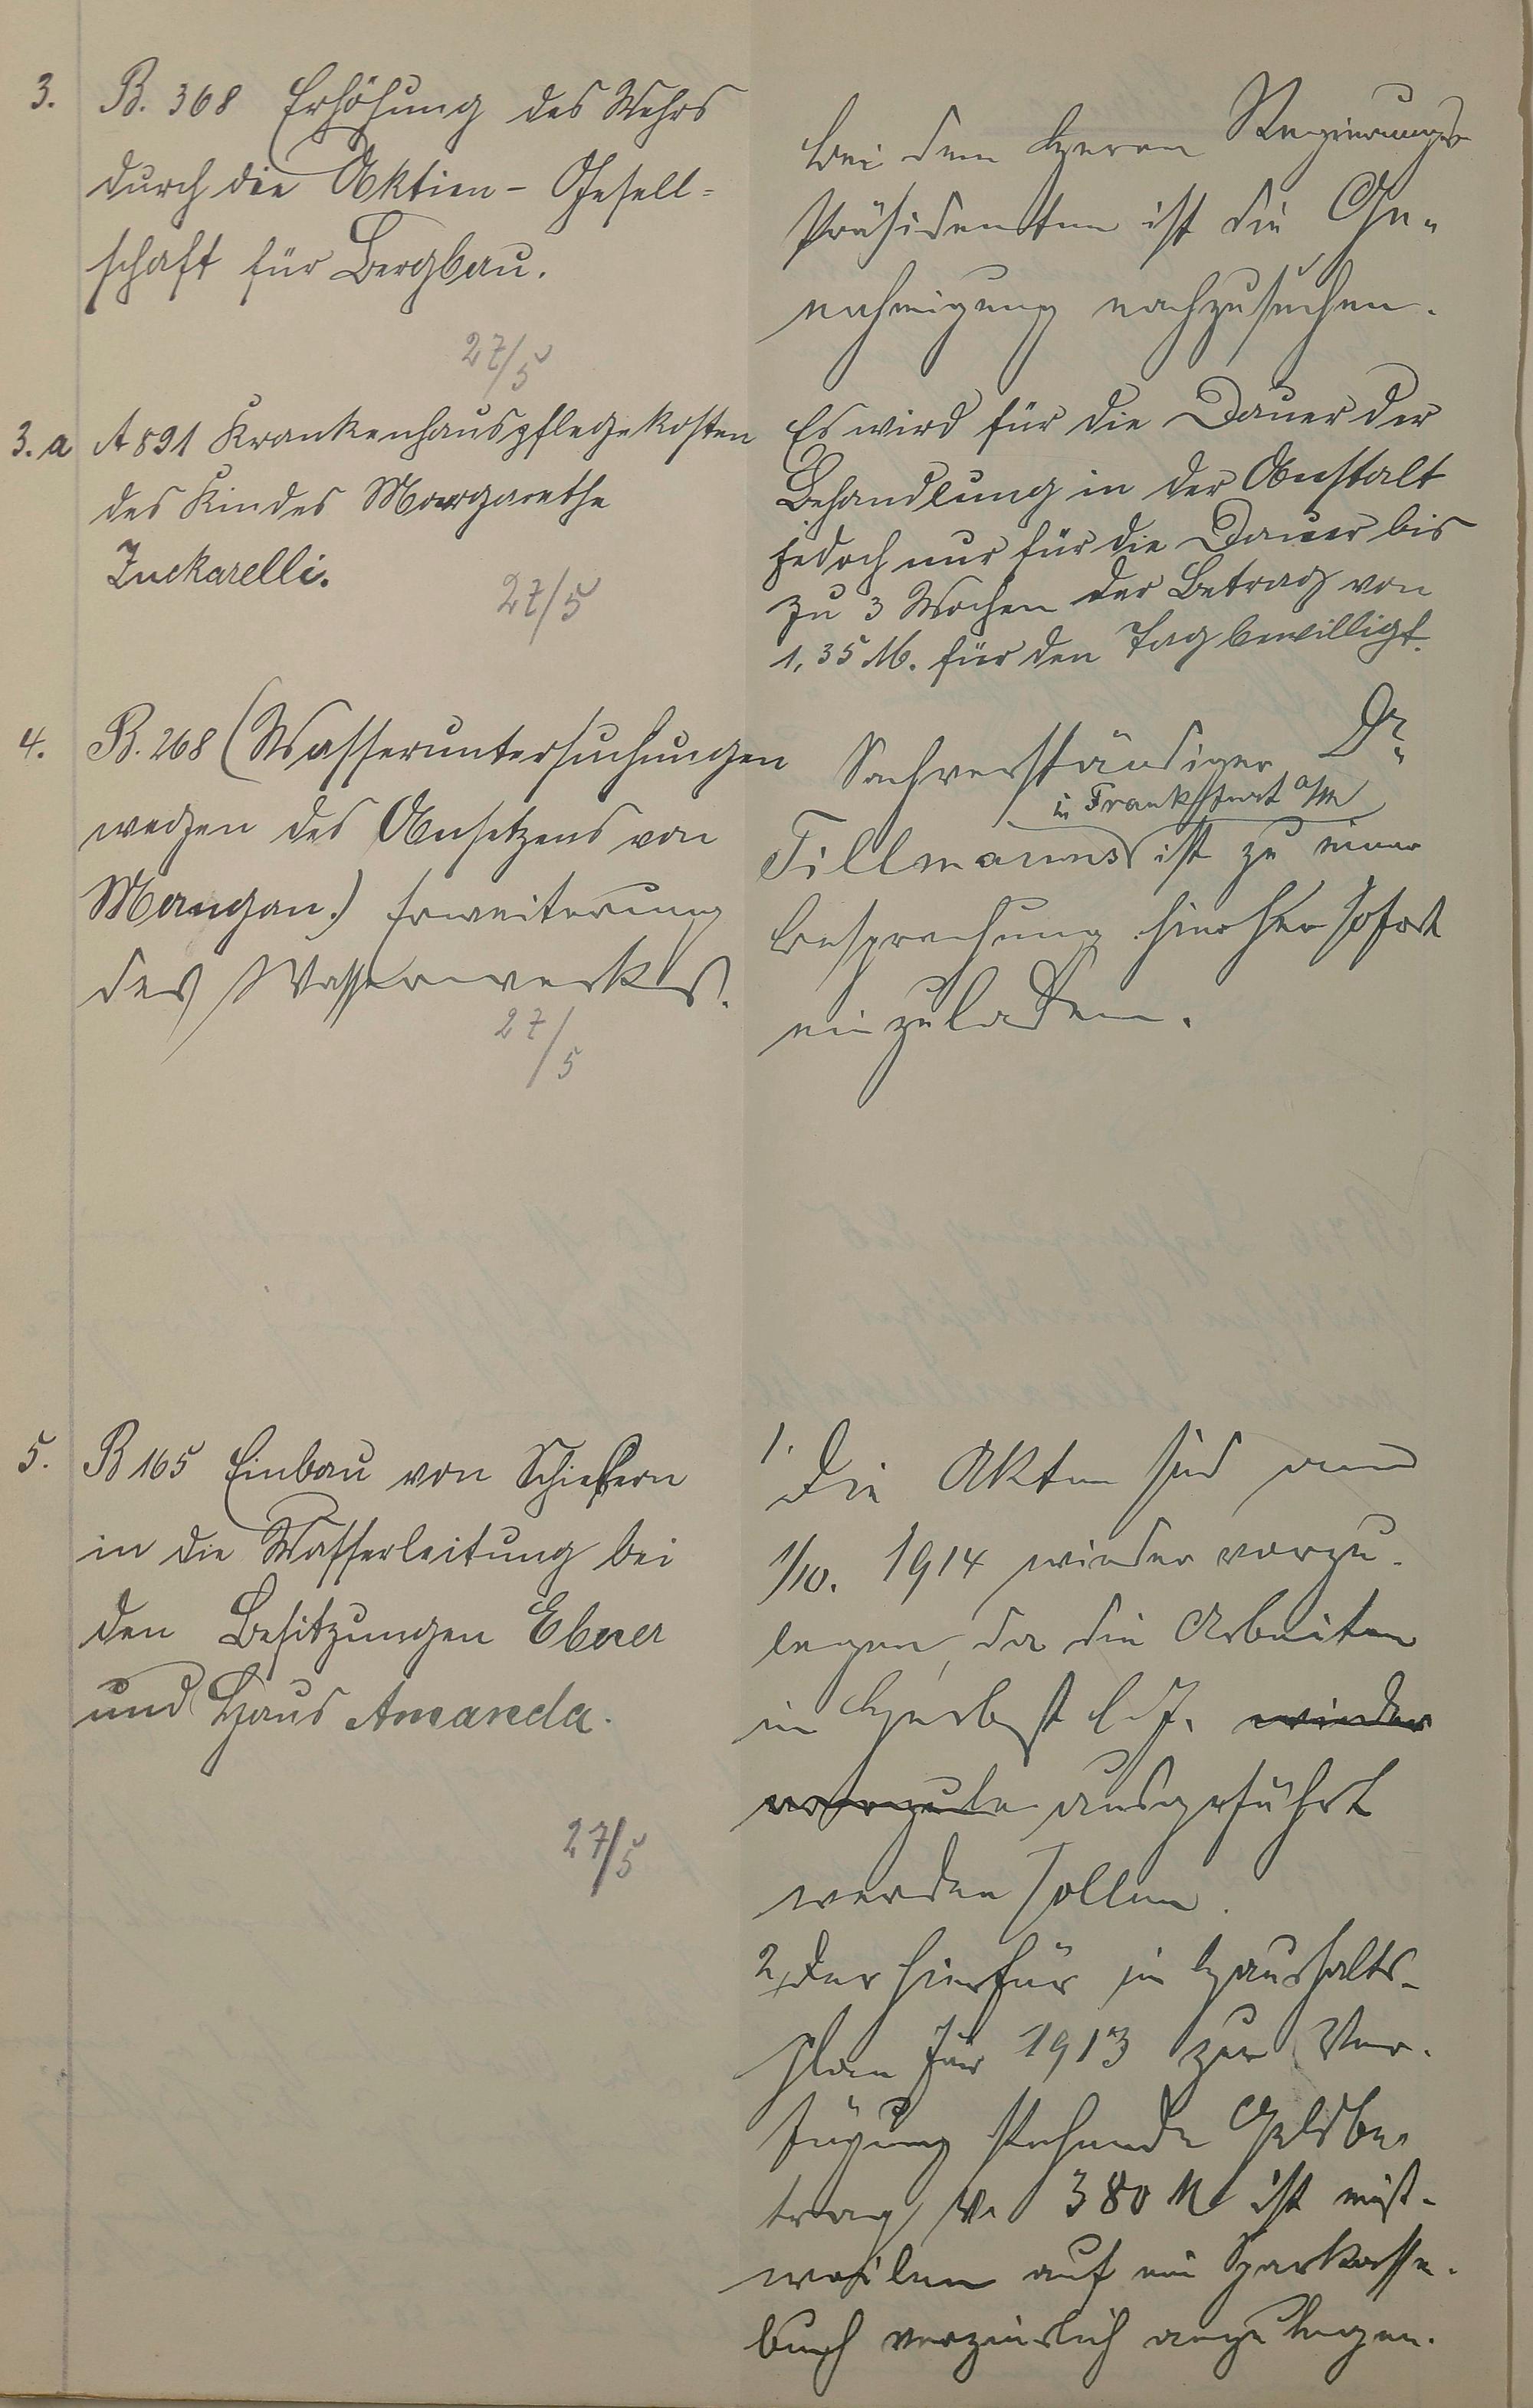 3. B. 368 Erhöhung des Wehrs
durch die Aktien- Gesell=
schaft für Bergbau.
27/5
Bei dem Herrn Regierungs-
Präsidenten ist die Ge-
nehmigung nachzusuchen.
3.a A 891 Krankenhauspflegekosten
des Kindes Margarethe
Zuckarelli.
27/5
Es wird für die Dauer der
Behandlung in der Anstalt
jedoch nur für die Dauer bis
zu 3 Wochen der Betrag von
1,35 M. für den Tag bewilligt.
4. B. 268 (Wasseruntersuchungen
wegen des Ansetzens von
Mangan.) Erweiterung
des Wasserwerks.
27/5
Sachverständiger Dr.
in Frankfurt a/M
Tillmanns ist zu einer
Besprechung hierher sofort
einzuladen.
5. B 165 Einbau von Schiebern
in die Wasserleitung bei
den Besitzungen Ebner
und Haus Amanda.
27/5
1. Die Akten sind am
1/10. 1914 wieder vorzu-
legen, da die Arbeiten
im Herbst l.J. wieder
vorzule ausgeführt
werden sollen.
2, Der hierfür im Haushalts-
plan für 1913 zur Ver-
fügung stehende Geldbe-
trag v. 380 M ist einst-
weilen auf ein Sparkasse-
buch verzinslich anzulegen.